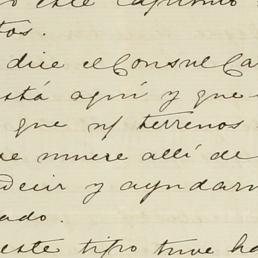 este capitulo
tos.
dice el Consul Ca
está aquí y que
que n/ terrenos
se muere allí de
decir y ayudarn
ado.
este tipo tuve ha